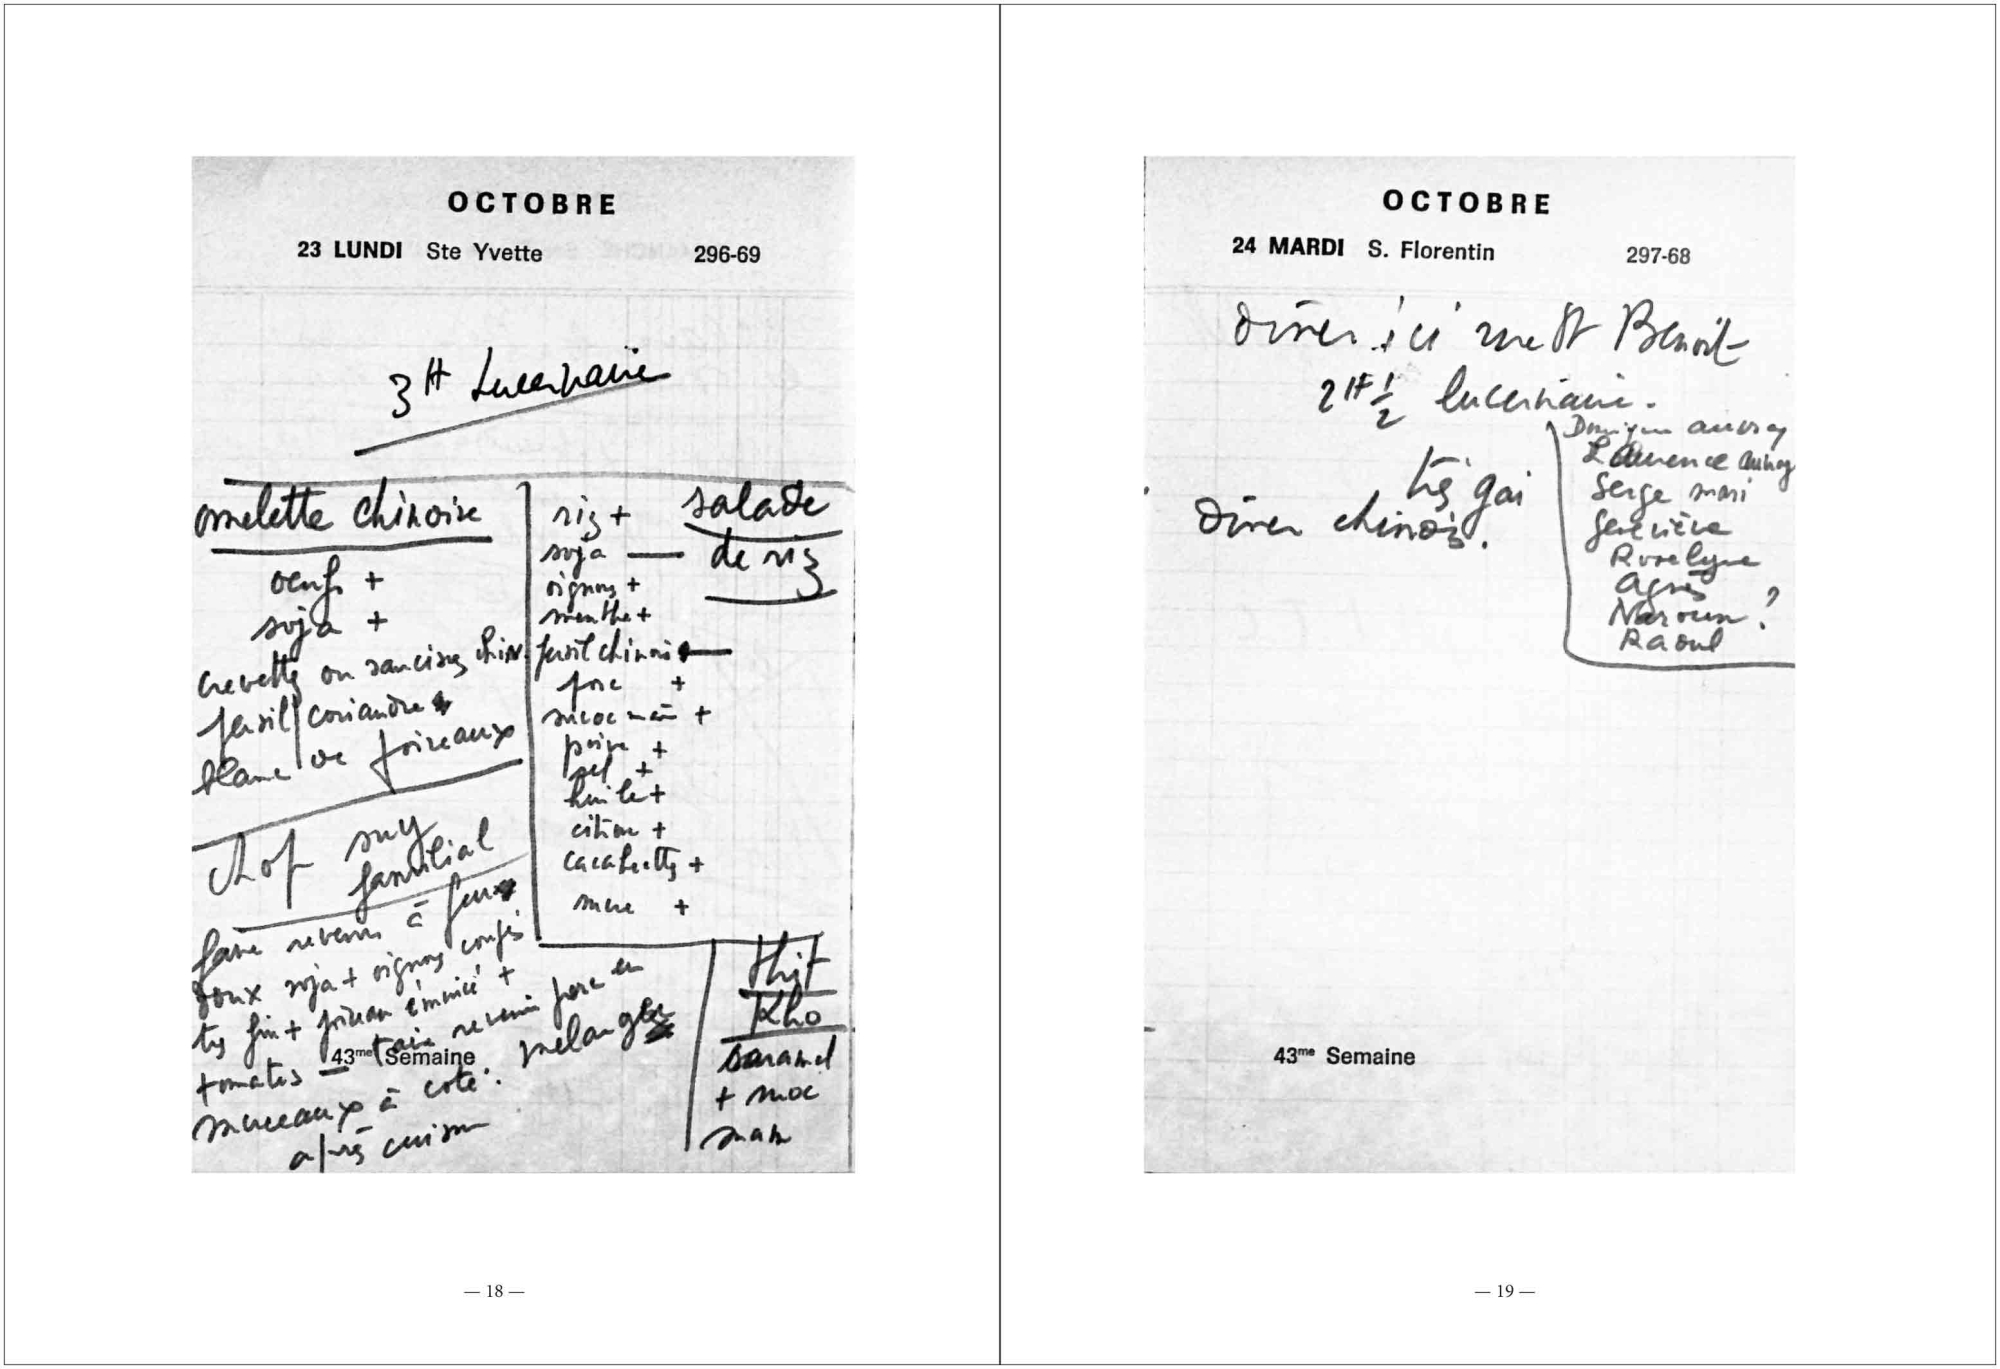 OCTOBRE
23 LUNDI Ste Yvette 296-69
3H Lucernaire
omelette chinoise
oeufs +
soja +
crevettes ou saucisses chin.
persil coriandre
blanc de poireaux
chop suey
familial
faire revenir à feux
doux soja + oignons coupés
très fin + poireau émincé +
tomates — faire revenir porc en
morceaux à coté. mélanger
après cuisson
riz +
soja —
oignons +
menthe +
persil chinois —
porc +
nuoc mâm +
poivre +
sel +
huile +
citron +
cacahuettes +
sucre +
salade
de riz
thit
Kho
caramel
+ nuoc
mam
43me Semaine
— 18 —
OCTOBRE
24 MARDI S. Florentin 297-68
Dîner ici rue St Benoît
2H 1/2 lucernaire.
très gai
Dîner chinois.
Dominique auvray
Laurence auvray
Serge mari
Geneviève
Roselyne
Agnès
Naroun ?
Raoul
43me Semaine
— 19 —